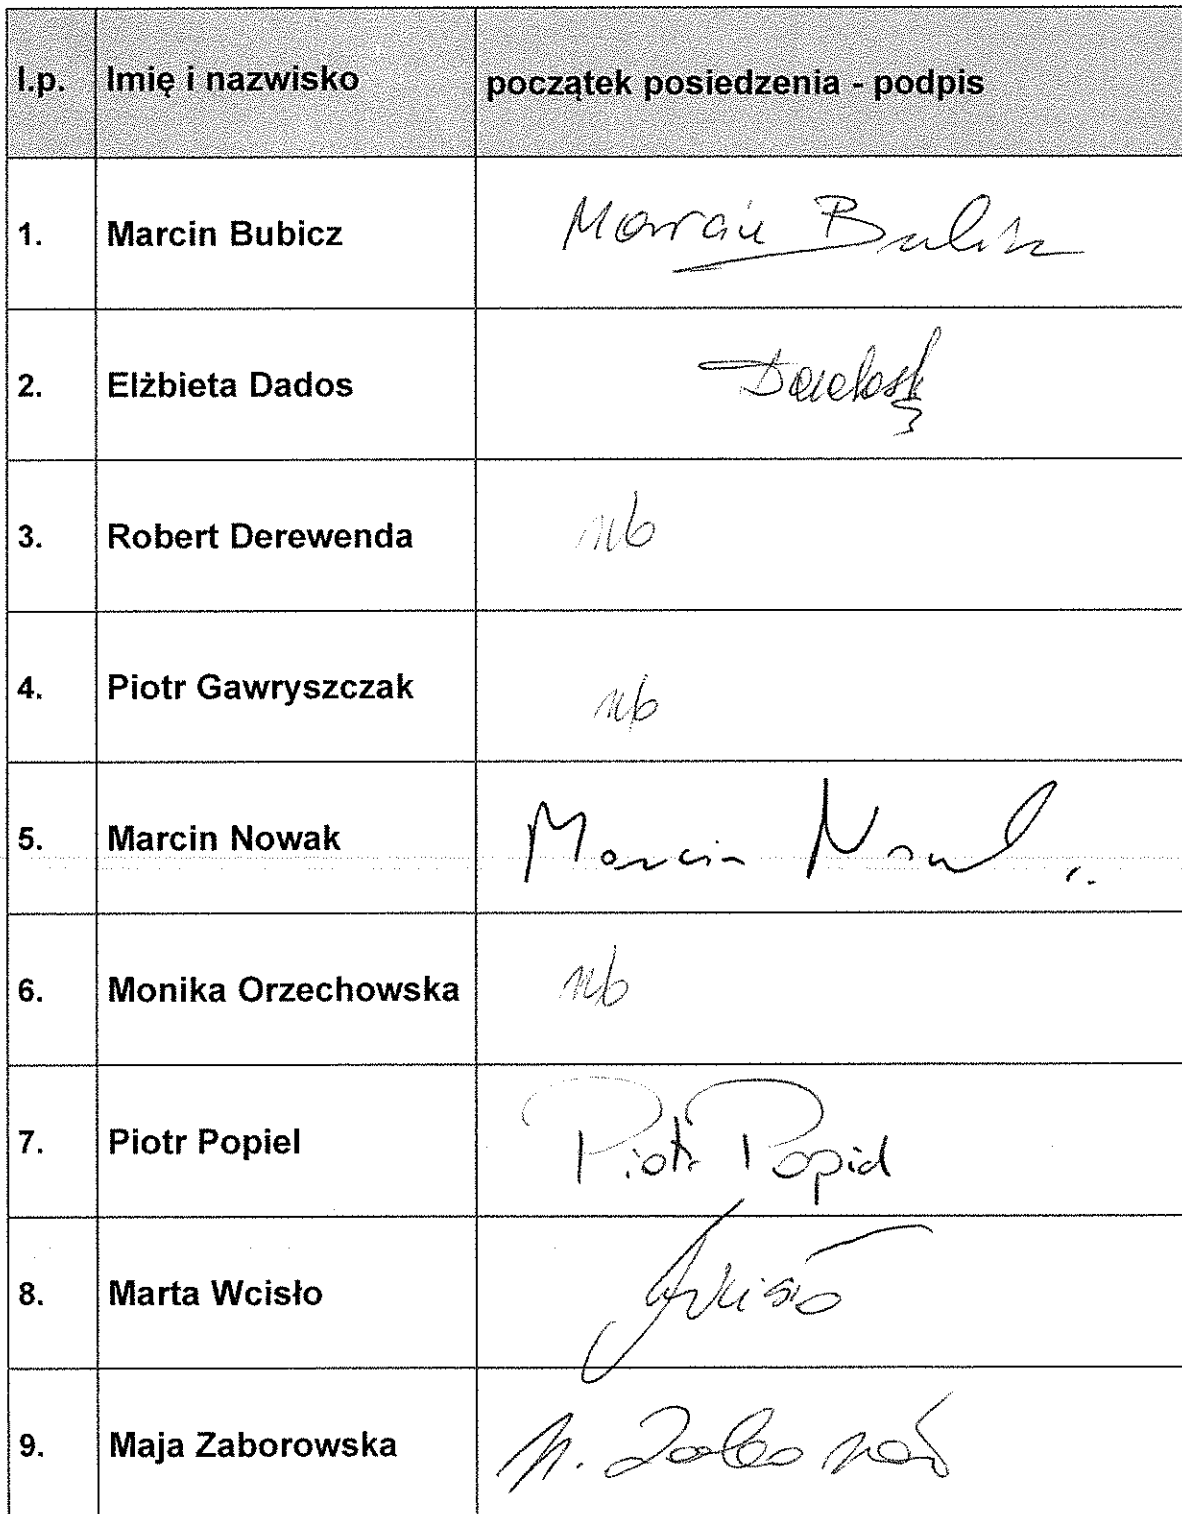 l.p. Imię i nazwisko początek posiedzenia - podpis
1. Marcin Bubicz Marcin Bubicz
2. Elżbieta Dados
3. Robert Derewenda nb
4. Piotr Gawryszczak nb
5. Marcin Nowak Marcin Nowak
6. Monika Orzechowska nb
7. Piotr Popiel Piotr Popiel
8. Marta Wcisło Wcisło
9. Maja Zaborowska M.